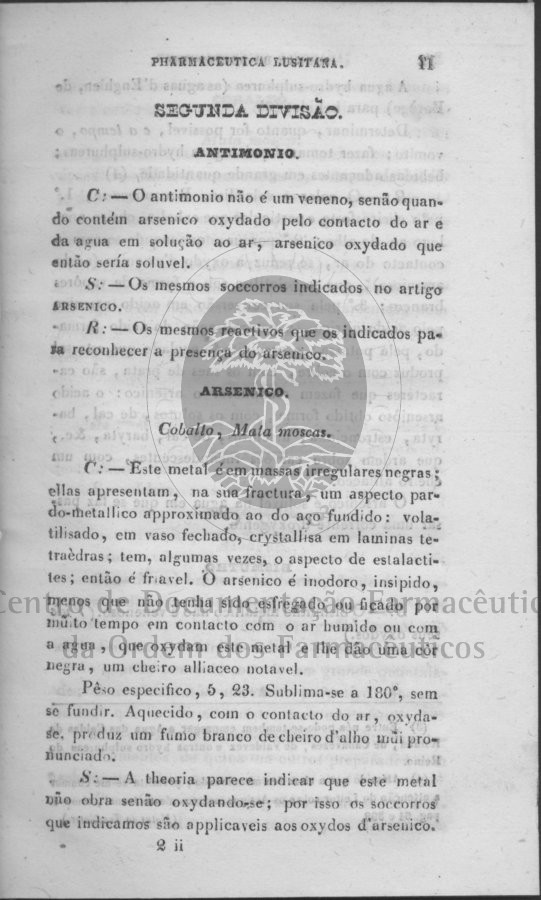 PHARMACEUTICA LUSITANA. 11
SEGUNDA DIVISÃO.
ANTIMONIO.
C: — O antimonio não é um veneno, senão quan-
do contém arsenico oxydado pelo contacto do ar e
da agua em solução ao ar, arsenico oxydado que
então sería soluvel.
S: — Os mesmos soccorros indicados no artigo
ARSENICO.
R: — Os mesmos reactivos que os indicados pa-
ra reconhecer a presença do arsenico.
ARSENICO.
Cobalto, Mata moscas.
C: — Este metal é em massas irregulares negras;
ellas apresentam, na sua fractura, um aspecto par-
do-metallico approximado ao do aço fundido: vola-
tilisado, em vaso fechado, crystallisa em laminas te-
traèdras; tem, algumas vezes, o aspecto de estalacti-
tes; então é friavel. O arsenico é inodoro, insipido,
menos que não tenha sido esfregado ou ficado por
muito tempo em contacto com o ar humido ou com
a agua, que oxydam este metal e lhe dão uma côr
negra, um cheiro alliaceo notavel.
Pêso especifico, 5, 23. Sublima-se a 180°, sem
se fundir. Aquecido, com o contacto do ar, oxyda-
se, produz um fumo branco de cheiro d'alho mui pro-
nunciado.
S: — A theoria parece indicar que este metal
não obra senão oxydando-se; por isso os soccorros
que indicamos são applicaveis aos oxydos d'arsenico.
2 ii
Centro de Documentação Farmacêutic
da Ordem dos Farmacêuticos